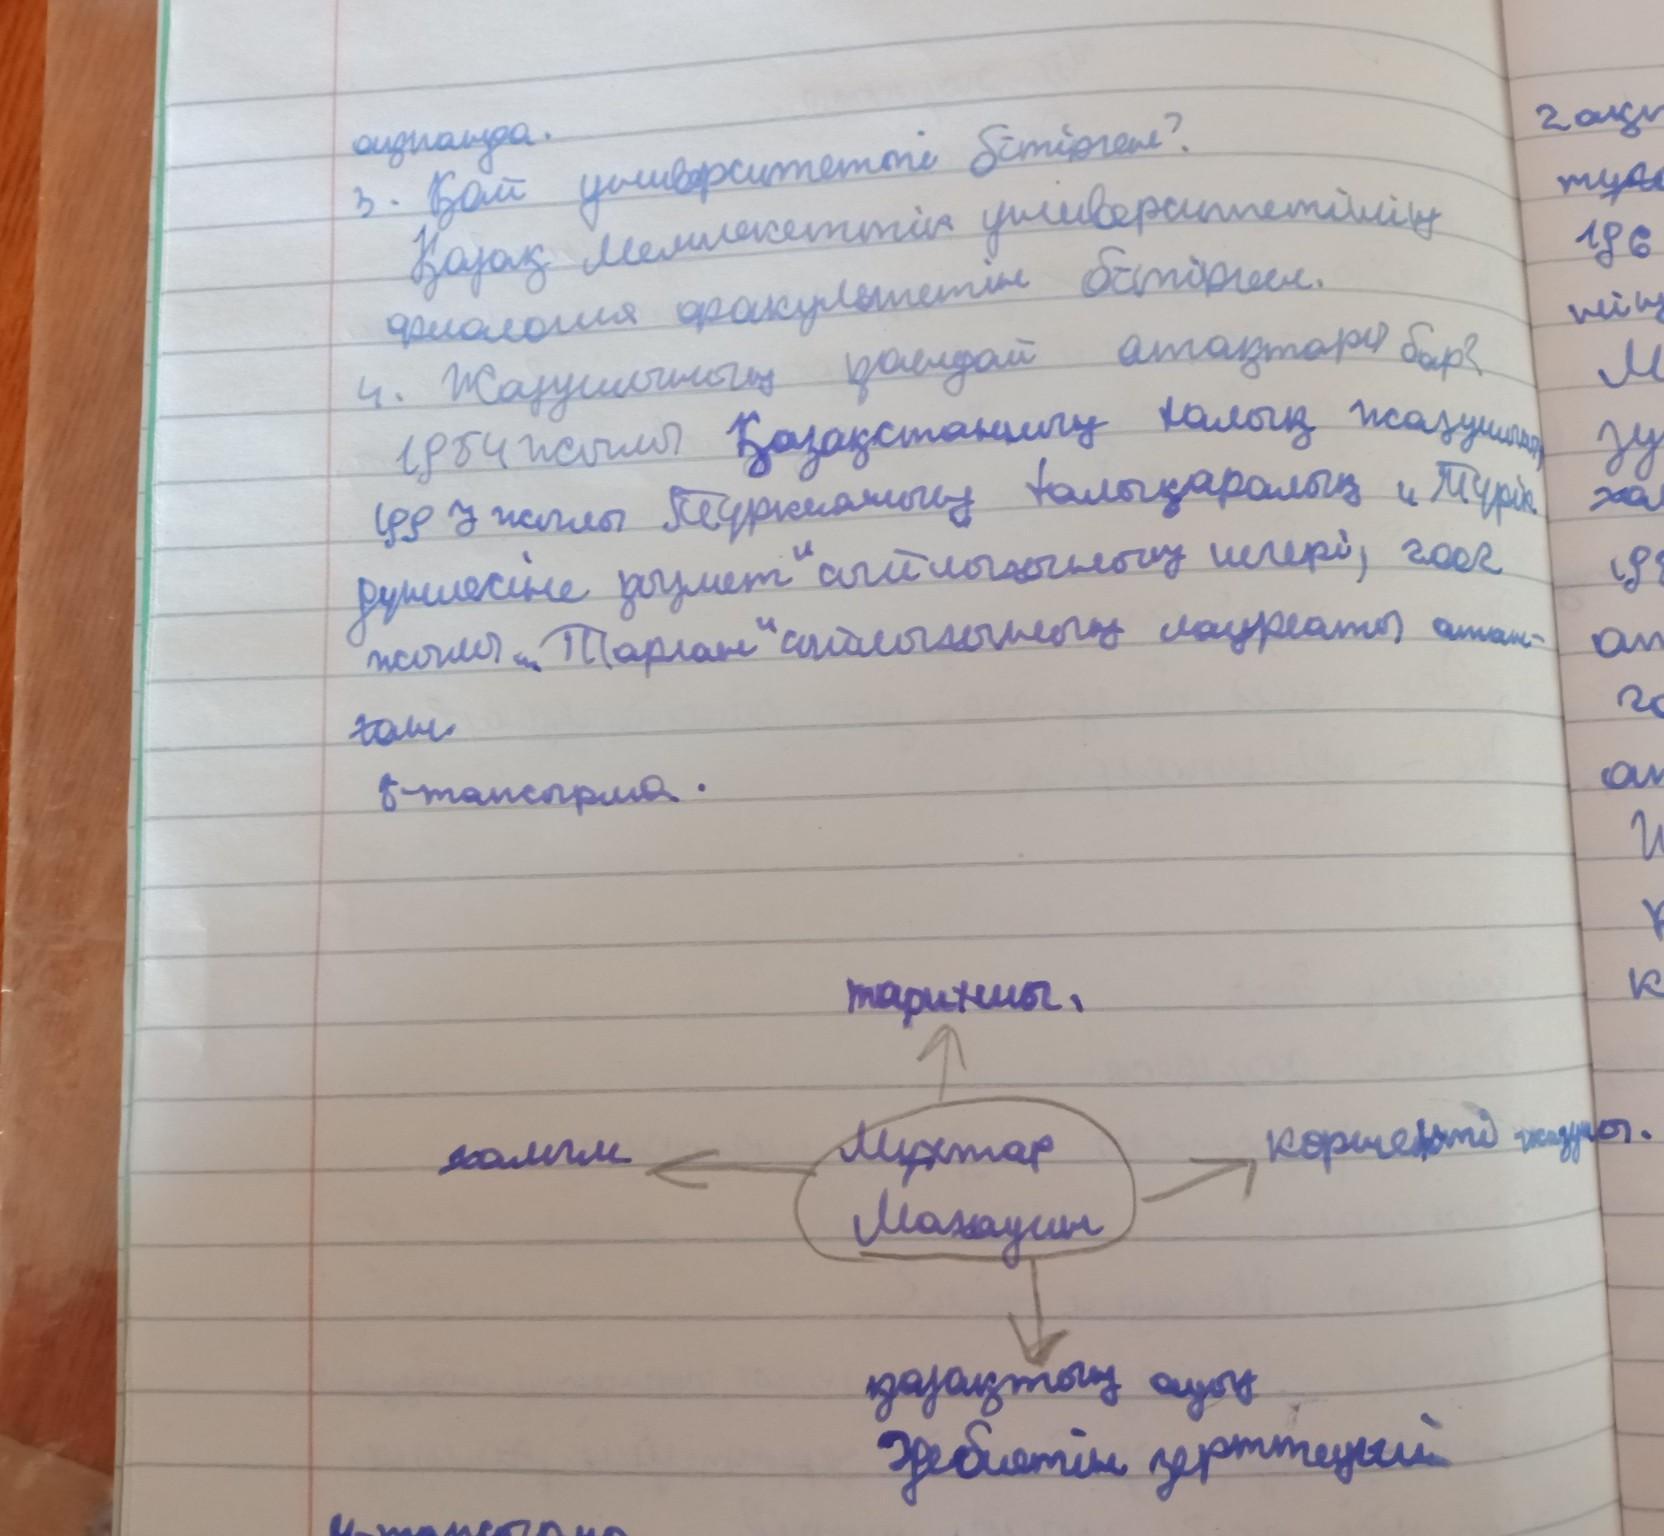 ауданда.
3. Қай университетті бітірген?
Қазақ Мемлекеттік университетінің
филология факультетін бітірген.
4. Жазушының қандай атақтары бар?
1984 жылы Қазақстанның халық жазушысы,
1997 жылы Түркияның халықаралық „Түрік
дүниесіне қызмет" сыйлығының иегері, 2002
жылы „Тарлан" сыйлығының лауреаты атан-
ған.
5-тапсырма.
тарихшы.
ғалым
Мұхтар
Мағауин
көрнекті жазушы.
қазақтың ауыз
Әдебиетін зерттеуші
4-тапсырма
2 ақп
туғ
196
нің
М
зу
хал
199
ат
20
ат
К